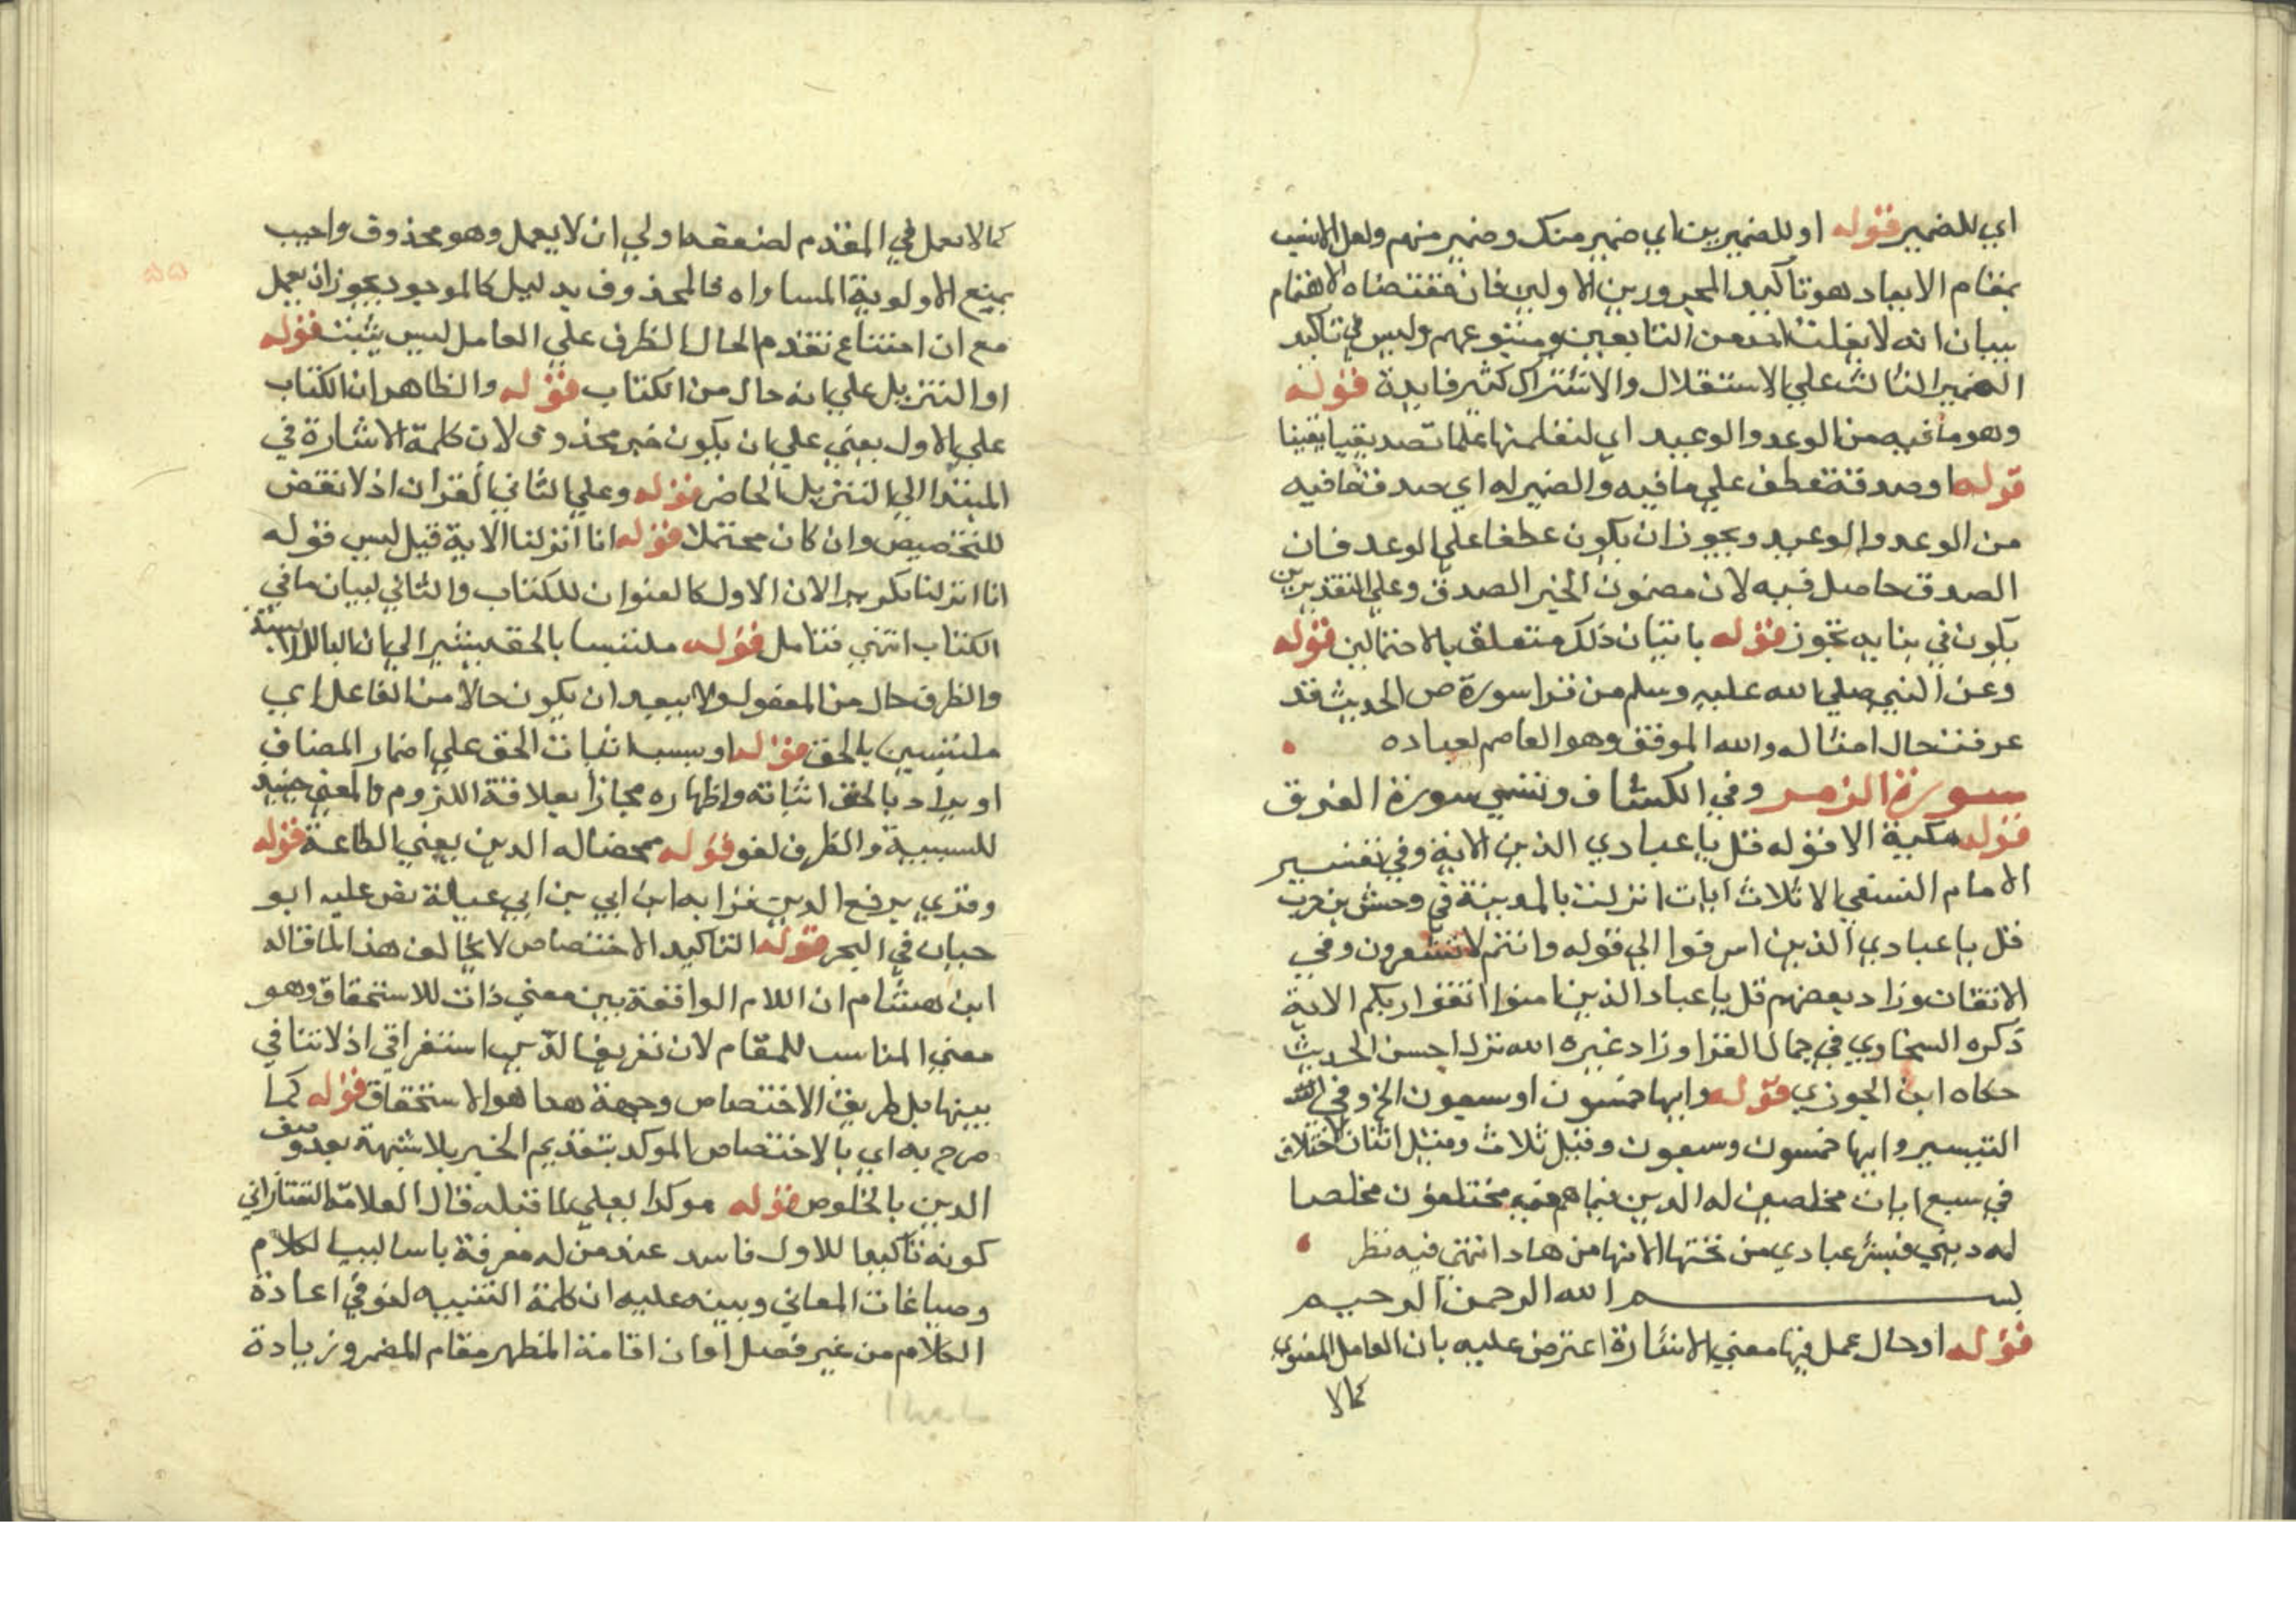 اي للضمير قوله او للضميرين اي ضمير منك وضمير منهم ولعل الانسب
بمقام الابعاد هو تاكيد المجرورين الاولين فان مقتضاه الاهتمام
ببيان انه لا يفلت احد من التابعين ومتبوعهم وليس في تاكيد
الضمير الثالث على الاستقلال والاشتراك كثير فايدة قوله
وهو ما فيه من الوعد والوعيد اي لتعلمنها علما تصديقيا يقينا
قوله او صدقة عطف علي ما فيه والضمير له اي صدق ما فيه
من الوعد والوعيد ويجوز ان يكون عطفا علي الوعد فان
الصدق حاصل فيه لان مضمون الخبر الصدق وعلي التقديرين
يكون في بنايه تجوز قوله باتيان ذلك متعلق بالاحتمالين قوله
وعن النبي صلي الله عليه وسلم من قرا سورة ص الحديث قد
عرفت حال امثاله والله الموفق وهو العاصم لعباده
سورة الزمر وفي الكشاف وتسمي سورة الغرف
قوله مكية الا قوله قل يا عبادي الذين الاية وفي تفسير
الامام النسفي الا ثلاث ايات انزلت بالمدينة في وحشي بن حرب
قل يا عبادي الذين اسرفوا الي قوله وانتم لا تشعرون وفي
الاتقان وزاد بعضهم قل يا عباد الذين امنوا اتقوا ربكم الاية
ذكره السخاوي في جمال القرا وزاد غيره الله نزل احسن الحديث
حكاه ابن الجوزي قوله وايها خمسون او سبعون الخ وفي
التيسير وايها خمسون وسبعون وقيل ثلاث وقيل اثنان الاختلاف
في سبع ايات مخلصين له الدين فيما هم فيه مختلفون مخلصا
له ديني فبشر عبادي من تحتها الانهار من هاد انتهي فيه نظر
بسم الله الرحمن الرحيم
قوله او حال عمل فيها معني الاشارة اعترض عليه بان العامل المعنوي
كما لا
كما لا يعمل في المقدم لضعفه اولي ان لا يعمل وهو محذوف واجيب
بمنع الاولوية المساواه فالمحذوف بدليل كالموجود يجوز ان يعمل
مع ان امتناع تقدم الحال الظرف علي العامل ليس يثبت قوله
او التنزيل علي انه حال من الكتاب قوله والظاهر ان الكتاب
علي الاول يعني علي ان يكون خبر محذوف لان كلمة الاشارة في
المبتدا الي التنزيل الحاضر قوله وعلي الثاني القران اذ لا نقض
للتخصيص وان كان محتملا قوله انا انزلنا الاية قيل ليس قوله
انا انزلنا تكريرا لان الاول كالعنوان للكتاب والثاني لبيان ما في
الكتاب انتهي فتامل قوله ملتبسا بالحق يشير الي ان البا للملابسة
والظرف حال من المفعول ولا يبعد ان يكون حالا من الفاعل اي
ملتبسين بالحق قوله او بسبب اثبات الحق علي اضمار المضاف
او يراد بالحق اثباته واظهاره مجازا بعلاقة اللزوم والمعني حينيذ
للسببية والظرف لغو قوله ممحضا له الدين يعني الطاعة قوله
وقري برفع الدين قرا به ابن ابي عبلة نص عليه ابو
حيان في البحر قوله التاكيد الاختصاص لا يخالف هذا لما قاله
ابن هشام ان اللام الواقعة بين معني وذات للاستحقاق وهو
معني المناسب للمقام لان تعريف الدين استغراقي اذ لا تنافي
بينها بل طريق الاختصاص وجهة هما هو الاستحقاق قوله كما
صرح به اي بالاختصاص الموكد بتقديم الخبر بلا شبهة بعد وصف
الدين بالخلوص قوله موكدا يعني لما قبله قال العلامة التفتازاني
كونه تاكيدا للاول فاسد عند من له معرفة باساليب الكلام
وصياغات المعاني وبينه عليه ان كلمة التنبيه لغو في اعادة
الكلام من غير فصل فان اقامة المظهر مقام المضمر وزيادة